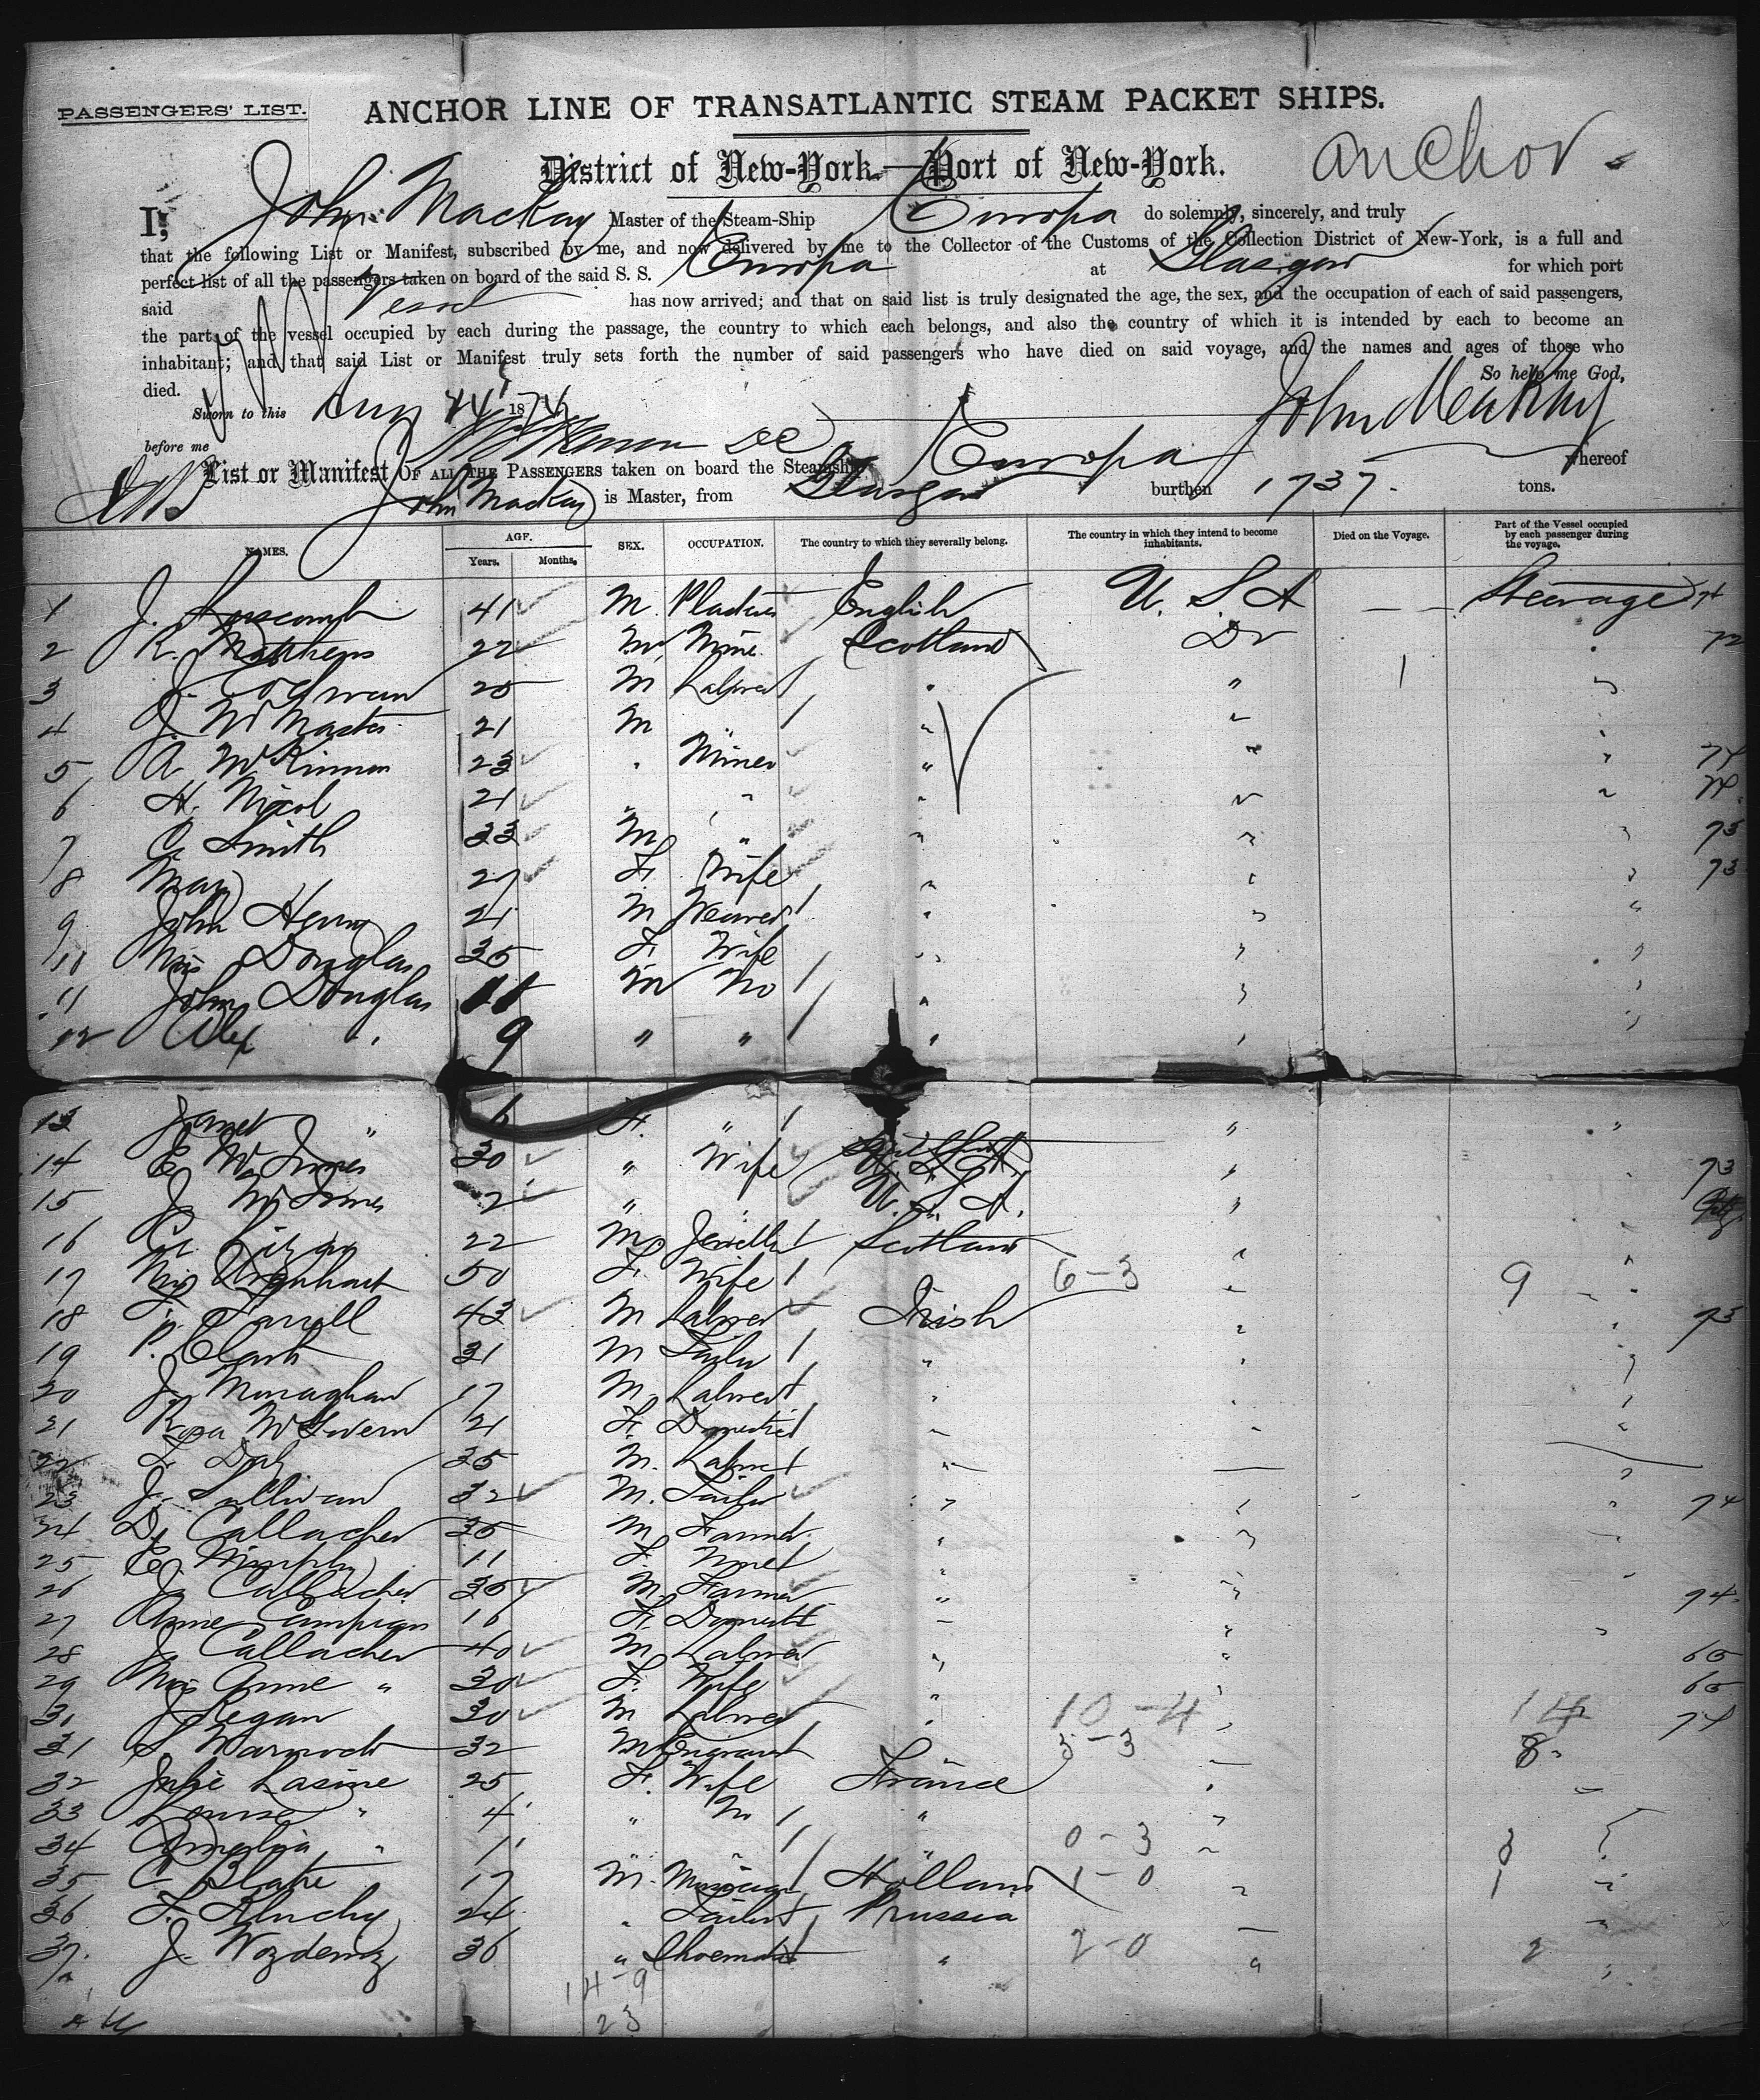 PASSENGERS' LIST.
ANCHOR LINE OF TRANSATLANTIC STEAM PACKET SHIPS.
District of New-York.—Port of New-York.
anchor
I, John Mackay Master of the Steam-Ship Europa do solemnly, sincerely, and truly
that the following List or Manifest, subscribed by me, and now delivered by me to the Collector of the Customs of the Collection District of New-York, is a full and
perfect list of all the passengers taken on board of the said S. S. Europa at Glasgow for which port
said Vessel has now arrived; and that on said list is truly designated the age, the sex, and the occupation of each of said passengers,
the part of the vessel occupied by each during the passage, the country to which each belongs, and also the country of which it is intended by each to become an
inhabitant; and that said List or Manifest truly sets forth the number of said passengers who have died on said voyage, and the names and ages of those who
died. So help me God,
Sworn to this Aug 1874 John Mackay
before me
List or Manifest OF ALL THE PASSENGERS taken on board the Steamship Europa whereof
John Mackay is Master, from Glasgow burthen 1737. tons.
NAMES. AGE. Years. Months. SEX. OCCUPATION. The country to which they severally belong. The country in which they intend to become inhabitants. Died on the Voyage. Part of the Vessel occupied by each passenger during the voyage.
1 J. 41 M English U. S. A Steerage 74
2 R. Matthews 22 Scotland Do 72
3 J. 25 M Labourer " "
4 J. McMaster 21 M " " "
5 A. McKinnon 23 " Miner " " 74
6 H. Nicol 21 " " " " 74
7 C. Smith 23 M " " " 73
8 Mary 27 F Wife " " 73
9 John 21 M Weaver " "
10 Mrs Douglas 35 F Wife " "
11 John Douglas 11 M No " "
12 Alex " 9 " " " "
13 Janet " 6 F. " "
14 E McInnes 30 " Wife U. S. A. " 73
15 J. McInnes 2 " " U. S. A. "
16 22 M Scotland "
17 Mrs Urquhart 50 F Wife 6-3 " 9
18 43 M Labourer Irish " 73
19 P. Clark 31 M Tailor " "
20 J. Monaghan 17 M Labourer " "
21 Rosa McGivern 21 F. Domestic " "
22 Daly 35 M. Labourer "
23 J. Sullivan 32 M. Tailor " " 74
24 D. Callacher 35 M Farmer " "
25 Murphy 11 F. " "
26 J. Callacher 35 M Farmer " " 74
27 Anne Campion 16 F. Domestic " "
28 J. Callacher 40 M Labourer " " 65
29 Mrs Anne " 30 F. Wife " 65
30 J Regan 30 M Labourer " 10-4 " 14 74
31 S. Warnock 32 M 3-3 8
32 Julie Lasine 25 F. Wife France "
33 Louise " 4 " No " "
34 Amelia " 1 " " " 0-3 " 3
35 C Blake 17 M. Musician Holland 1-0 " 1
36 24 " Tailor Prussia
37. J. 36 " Shoemaker " 2-0 " 2
14-9
23